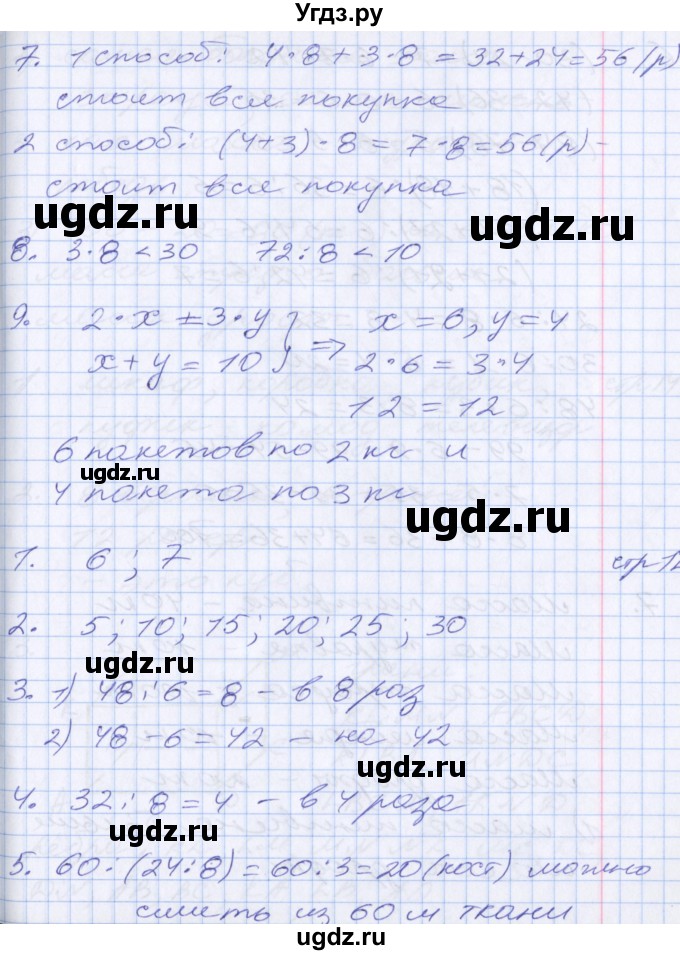 Угдз.ру
7. 1 способ: 4·8+3·8=32+24=56(р)
стоит вся покупка
2 способ: (4+3)·8=7·8=56(р)-
стоит вся покупка
ugdz.ru
ugdz.ru
8. 3·8<30 72:8<10
9. 2·x=3·y } x=6, y=4
x+y=10 } ⇒ 2·6=3·4
12=12
6 пакетов по 2 кг и
ugdz.ru
4 пакета по 3 кг
ugdz.ru
1. 6; 7
2. 5; 10; 15; 20; 25; 30
ugdz.ru
3. 1) 48:6=8 - в 8 раз
2) 48-6=42 - на 42
ugdz.ru
4. 32:8=4 - в 4 раза
ugdz.ru
5. 60:(24:8)=60:3=20(кост) можно
сшить из 60 м ткани
ugdz.ru